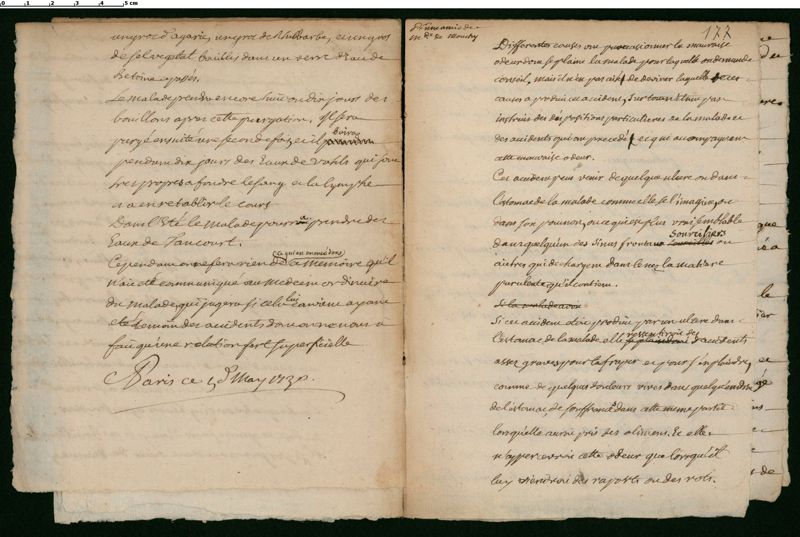 un gros d'agaric, un gros de Rhubarbe, et un gros
de sel vegetal bouillis dans un verre d'eau de
Betoine et passés.
Le malade prendra encore huit ou dix jours des
bouillons apres cette purgation. Il sera
purgé ensuitte une seconde fois et il boira
pendant dix jours des Eaux de Vahls qui sont
tres propres a fondre le sang et la lymphe
et a en retablir le cours.
Dans l'Eté le malade pourra prendre des
Eaux de Vancourt.
Cependant on ne fera rien de ce qui est en ce mémoire qu'il
n'ait eté communiqué au medecin ordinaire
du malade qui jugera si cela lui convient ayant
eté temoin des accidents dont on ne nous a
fait qu'une relation fort superficielle
a Paris ce 13 May 1730.
Pour une amie de
Me de Mouchy
177
Differentes causes ont pu occasionner la mauvaise
odeur dont se plaint la malade pour laquelle on demande
conseil, mais il n'est pas aisé de deviner laquelle de ces
causes a produit cet accident, sur tout n'etant pas
instruits des dispositions particulieres de la malade et
des accidents qui ont precedé et qui accompagnent
cette mauvaise odeur.
Cet accident peut venir de quelque ulcere ou dans
l'estomac de la malade comme elle se l'imagine, ou
dans son poumon, ou ce qui est plus vraisemblable
dans quelqu'un des sinus frontaux sourciliers ou
autres qui dechargent dans le nez la matiere
purulente qu'ils contiennent.
Si la malade avoit
Si cet accident etoit produit par un ulcere dans
l'estomac de la malade elle ressentiroit des accidents
assez graves pour la fraper et pour s'en plaindre,
comme de quelques douleurs vives dans quelqu'endroit
de l'estomac, de souffrances dans cette meme partie
lorsqu'elle auroit pris des aliments. Et elle
n'appercevroit cette odeur que lorsqu'il
luy viendroit des raports ou des rots.